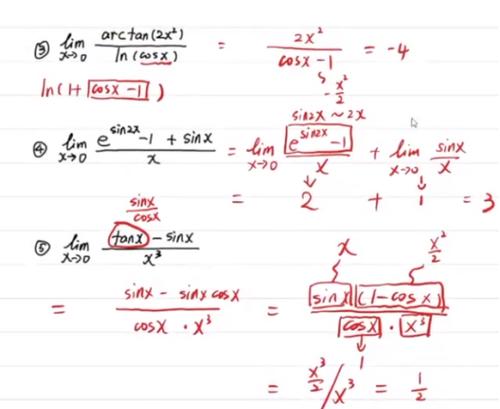 ③ lim x→0 arctan(2x²) / ln(cosx) = 2x² / cosx - 1 = -4
ln(1+ cosx - 1 ) - x²/2
sin2x ~ 2x
④ lim x→0 e^sin2x - 1 + sinx / x = lim x→0 e^sin2x - 1 / x + lim x→0 sinx / x
= 2 + 1 = 3
sinx / cosx
⑤ lim x→0 tanx - sinx / x³
x x²/2
= sinx - sinx cosx / cosx · x³ = sinx (1-cosx) / cosx · x³
1
= x³/2 / x³ = 1/2